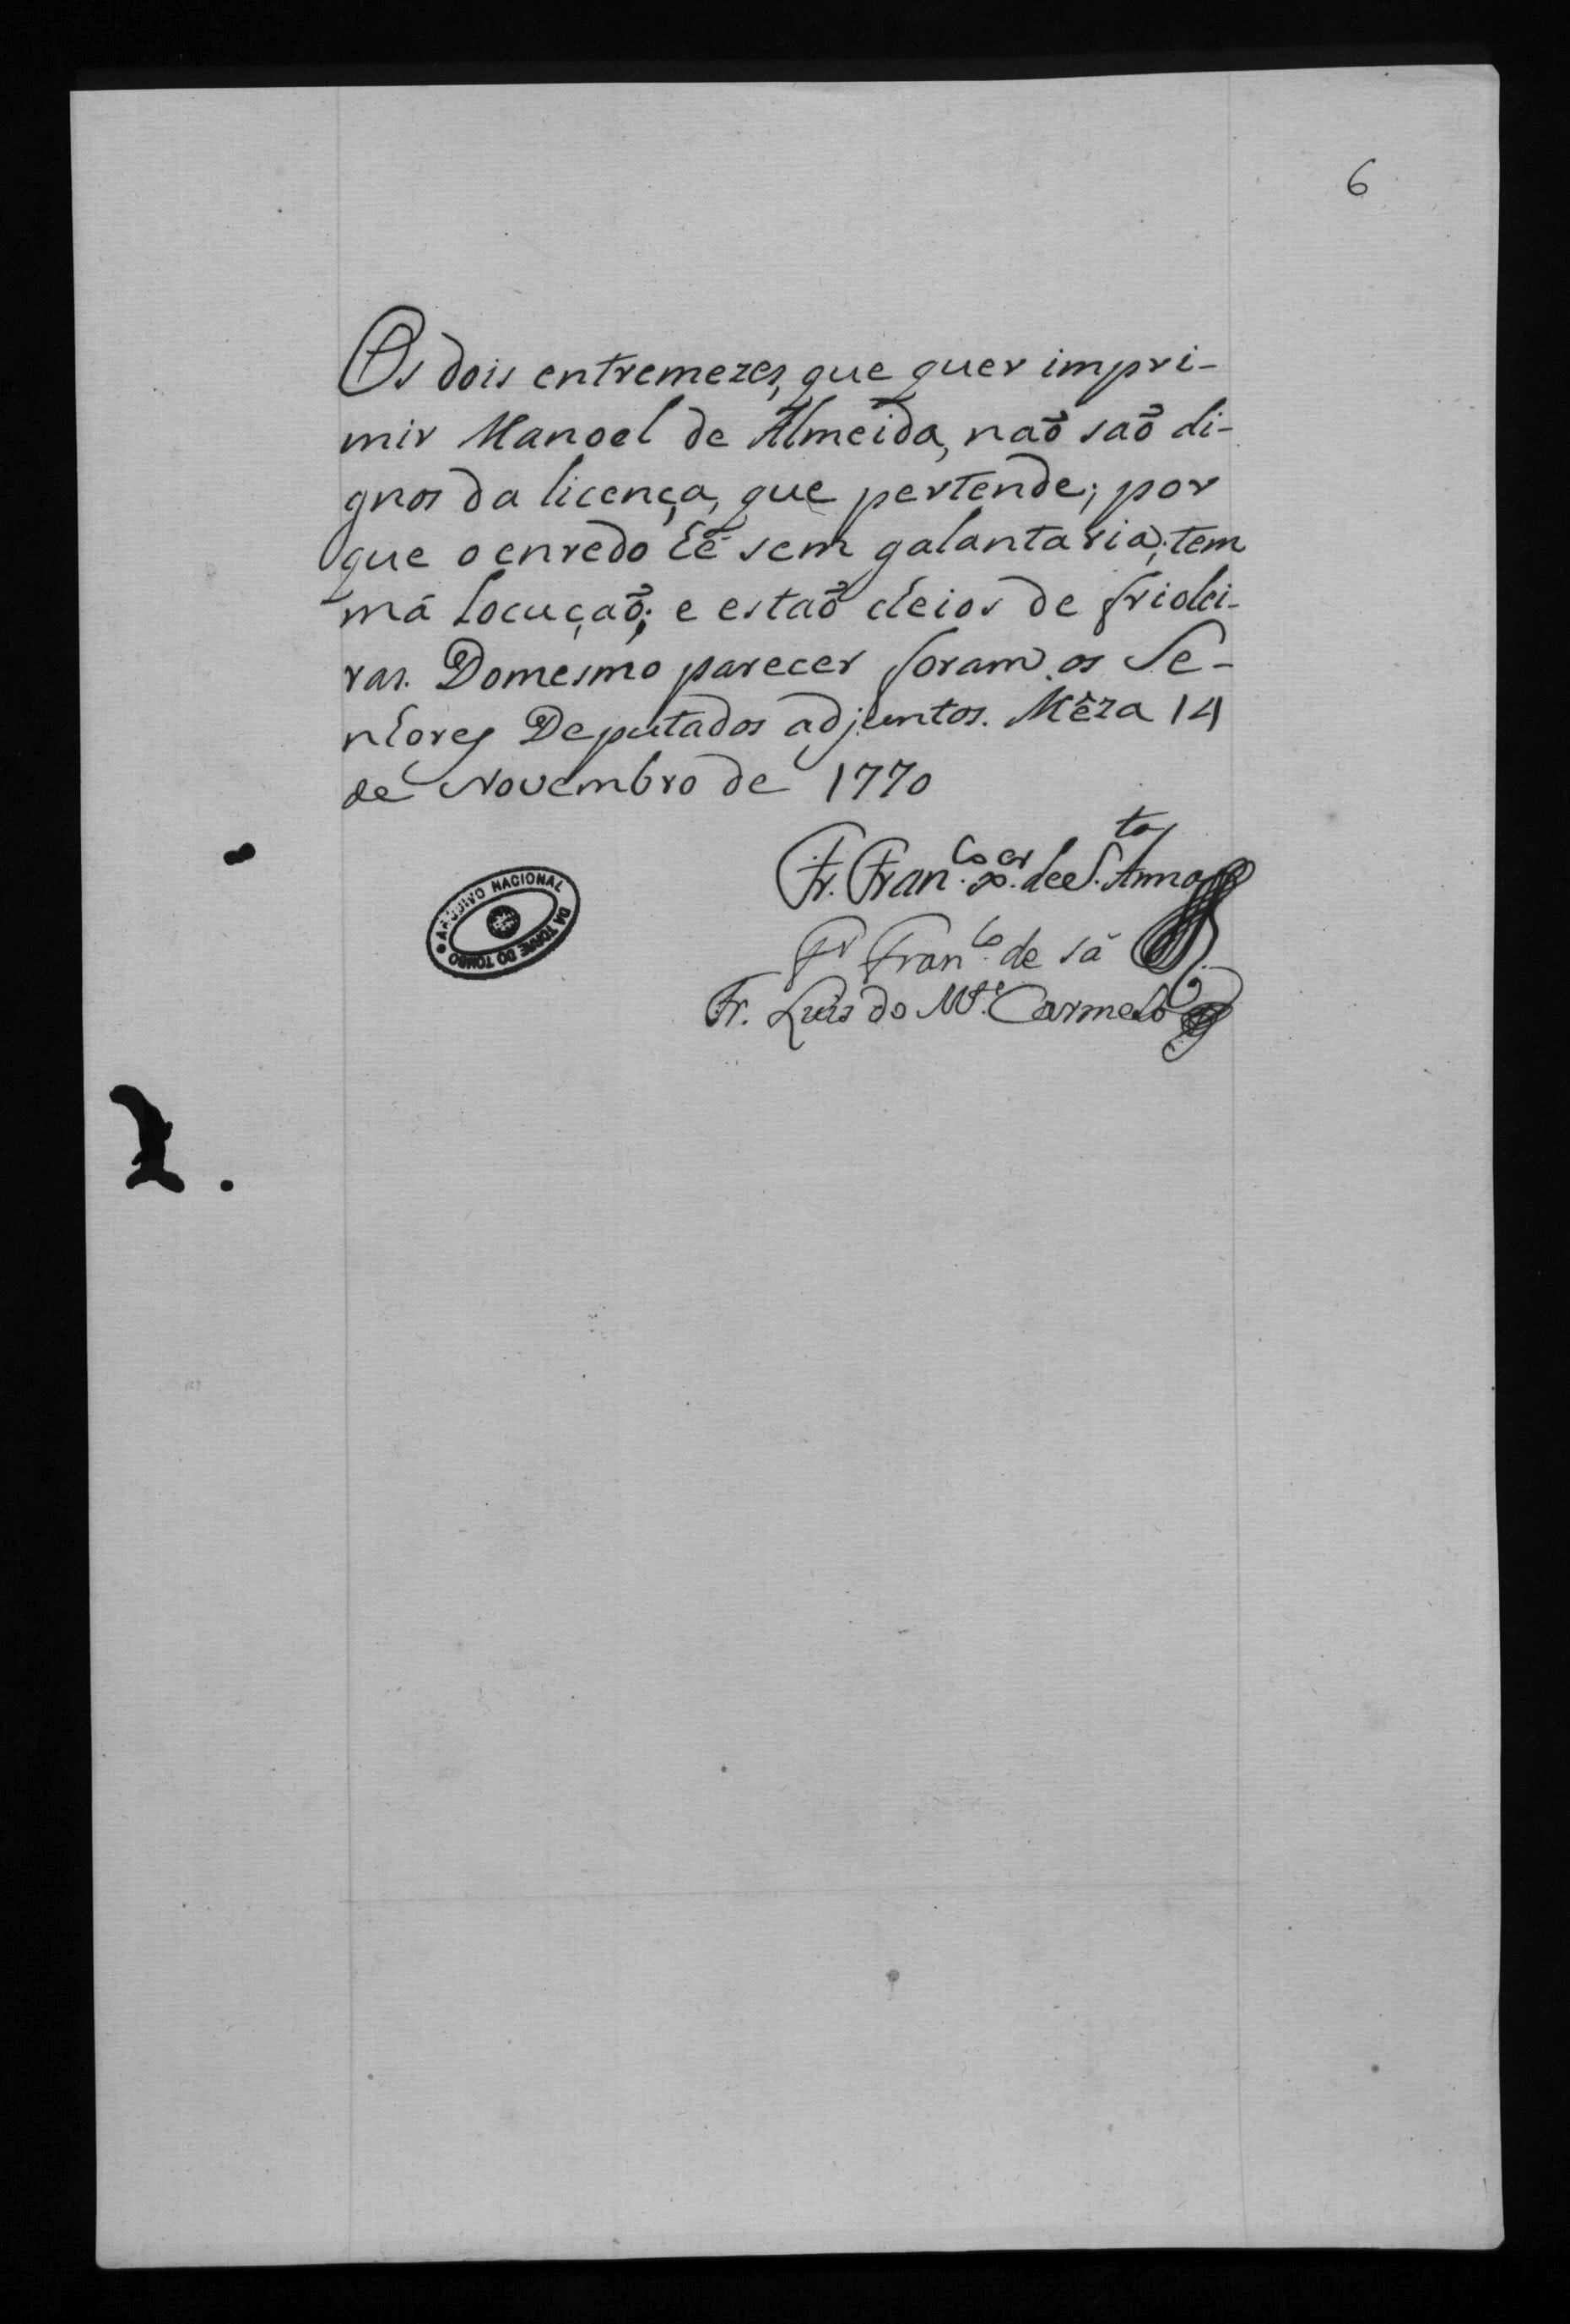 6
Os dois entremezes, que quer impri-
mir Manoel de Almeida, naõ saõ di-
gnos da licença, que pertende; por
que o enredo hé sem galantaria; tem
má locuçaõ; e estaõ cheios de friolei-
ras. Domesmo parecer foram os Se-
nhores Deputados adjuntos. Mêza 14
de Novembro de 1770
Fr. Fran.co X.er de S.ta Anna
Fr Fran.co de Sá
Fr. Luis do Mte. Carmelo
ARQUIVO NACIONAL
DA TORRE DO TOMBO